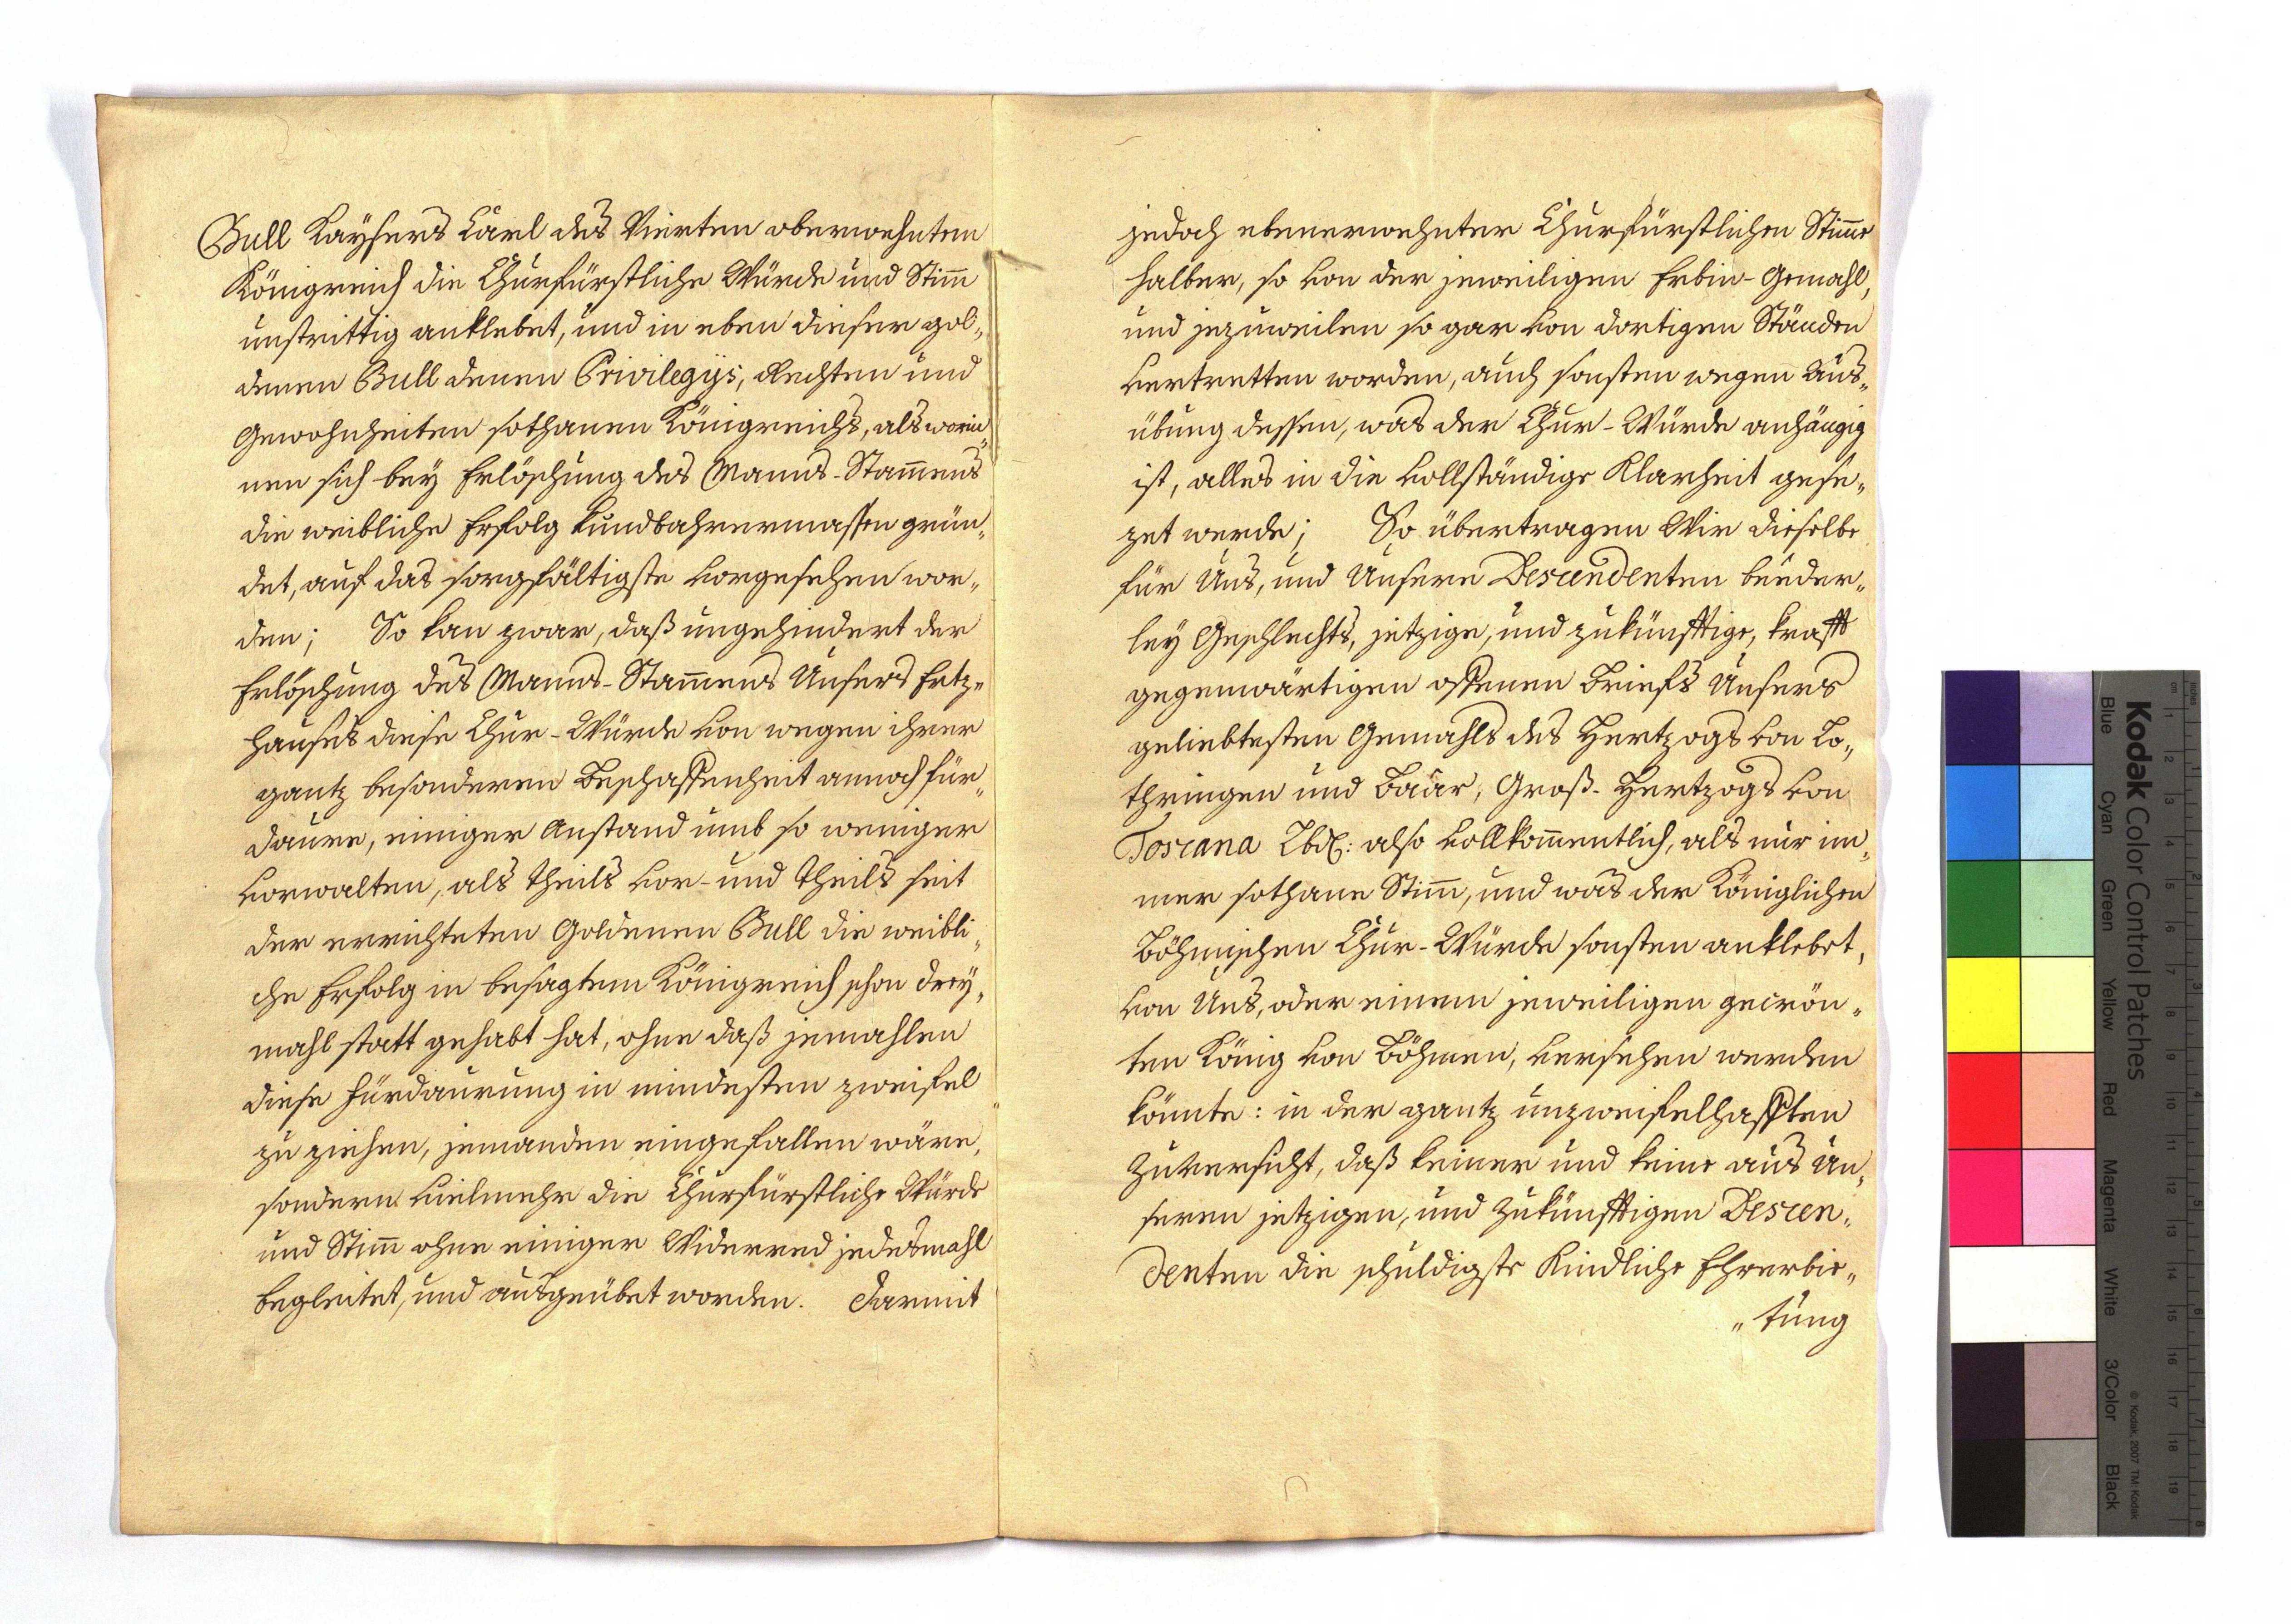 Bull Kaÿsers Carl des Vierten oberwehnten
Königreich die Churfürstliche Würde und Stim̄
unstrittig anklebet, und in eben dieser gol„
denen Bull denen Privilegÿs, Rechten und
Gewohnheiten sothanen Königreichs, als worin„
nen sich beÿ Erlöschung des Manns-Stam̄ens
die weibliche Erfolg kundbahrermassen grün„
det, auf das sorgfältigste vorgesehen wor„
den; So kan zwar, daß ungehindert der
Erlöschung des Manns-Stam̄ens Unsers Ertz„
Hauses diese Chur-Würde von wegen ihrer
gantz besonderen Beschaffenheit annoch für„
daure, einiger Anstand umb so weniger
vorwalten, als theils vor- und theils seit
der errichteten Goldenen Bull die weibli„
che Erfolg in besagtem Königreich schon dreÿ„
mahl statt gehabt hat, ohne daß jemahlen
diese Fürdaurung in mindesten zweifel
zu ziehen, jemanden eingefallen wäre,
sondern vielmehr die Churfürstliche Würde
und Stim̄ ohne einiger Widerred jedesmahl
begleitet, und ausgeübet worden. Darmit
jedoch ebenerwehnter Churfürstlichen Stim̄e
halber, so von der jeweiligen Erbin-Gemahl,
und jezuweilen so gar von dortigen Ständen
vertretten worden, auch sonsten wegen Aus„
übung dessen, was der Chur-Würde anhängig
ist, alles in die vollständige Klarheit gese„
zet werde; So übertragen Wir dieselbe
für Uns, und Unsere Descendenten beeder„
leÿ Geschlechts, jetzige, und zukünfftige, krafft
gegenwärtigen offenen Briefs Unsers
geliebtesten Gemahls des Hertzogs von Lo„
thringen und Baar, Groß-Hertzogs von
Toscana Lbd: also vollkom̄entlich, als nur im„
mer sothane Stim̄, und was der Königlichen
Böhmischen Chur-Würde sonsten anklebet,
von Uns, oder einem jeweiligen gecrön„
ten König von Böhmen, versehen werden
könnte: in der gantz unzweifelhafften
Zuversicht, daß keiner und keine aus Un„
seren jetzigen, und Zukünfftigen Descen„
denten die schuldigste Kindliche Ehrerbie„
„tung
Kodak Color Control Patches
Blue Cyan Green Yellow Red Magenta White 3/Color Black
inches 1 2 3 4 5 6 7 8
cm 1 2 3 4 5 6 7 8 9 10 11 12 13 14 15 16 17 18 19
© Kodak, 2007 TM Kodak